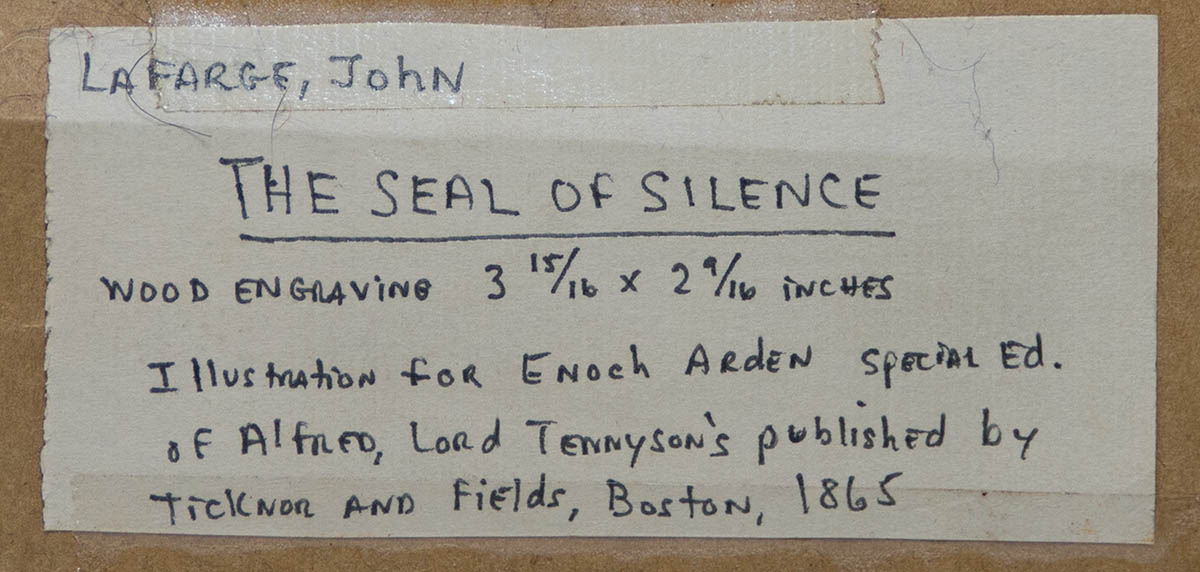 LAFARGE, JOHN
THE SEAL OF SILENCE
WOOD ENGRAVING 3 15/16 x 2 9/16 INCHES
Illustration for ENOCh ARDEN SPECIAL Ed.
OF Alfred, Lord TENNYSON'S published by
TICKNOR AND Fields, BOSTON, 1865